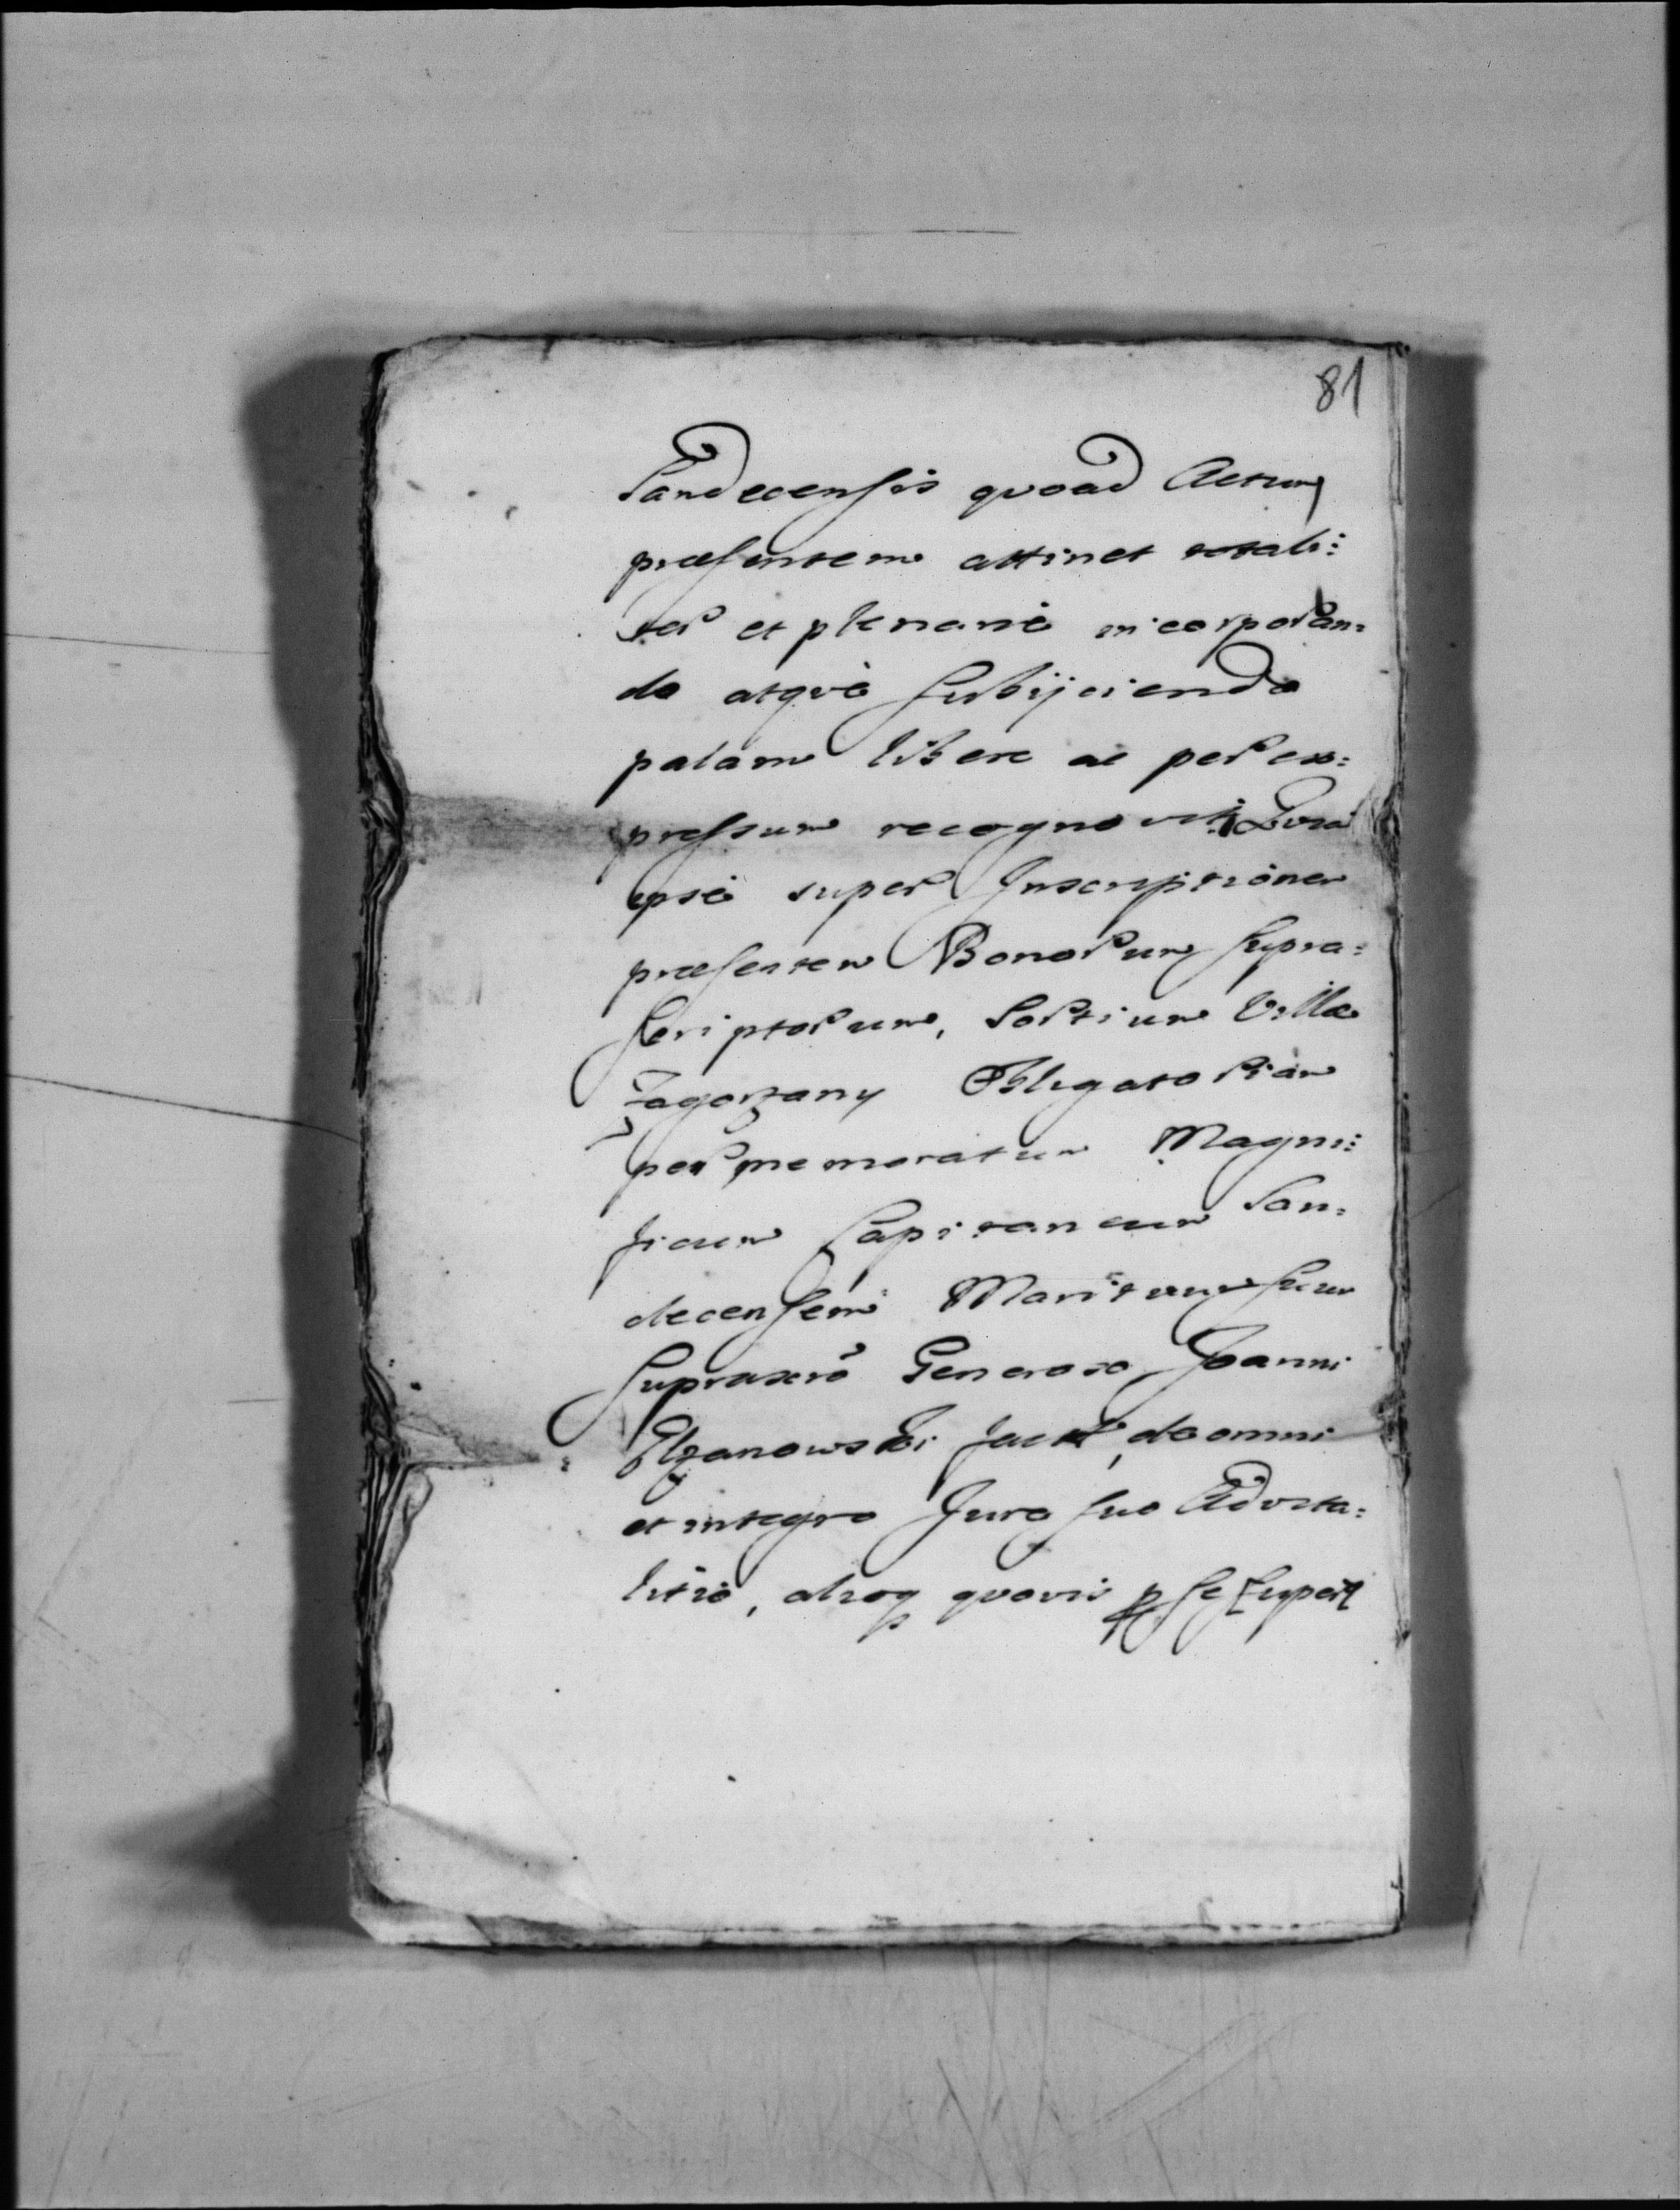 81
Sandecensis quoad Actum
præsentem attinet totali:
ter et plenarie incorporan=
do atque subijciendo
palam libere ac per ex=
pressum recognovit. Quia
ipsa super Inscriptionem
præsentem Bonorum supra=
scriptorum, Sortium Villæ
Zagorzany Obligatoriam
per memoratum Magni:
ficum Capitaneum San=
decensem Maritum suum
suprascrõ Generoso Joanni
Elżanowski factã, de omni
et integro Jure suo Advita=
litio, absq quovis p se super